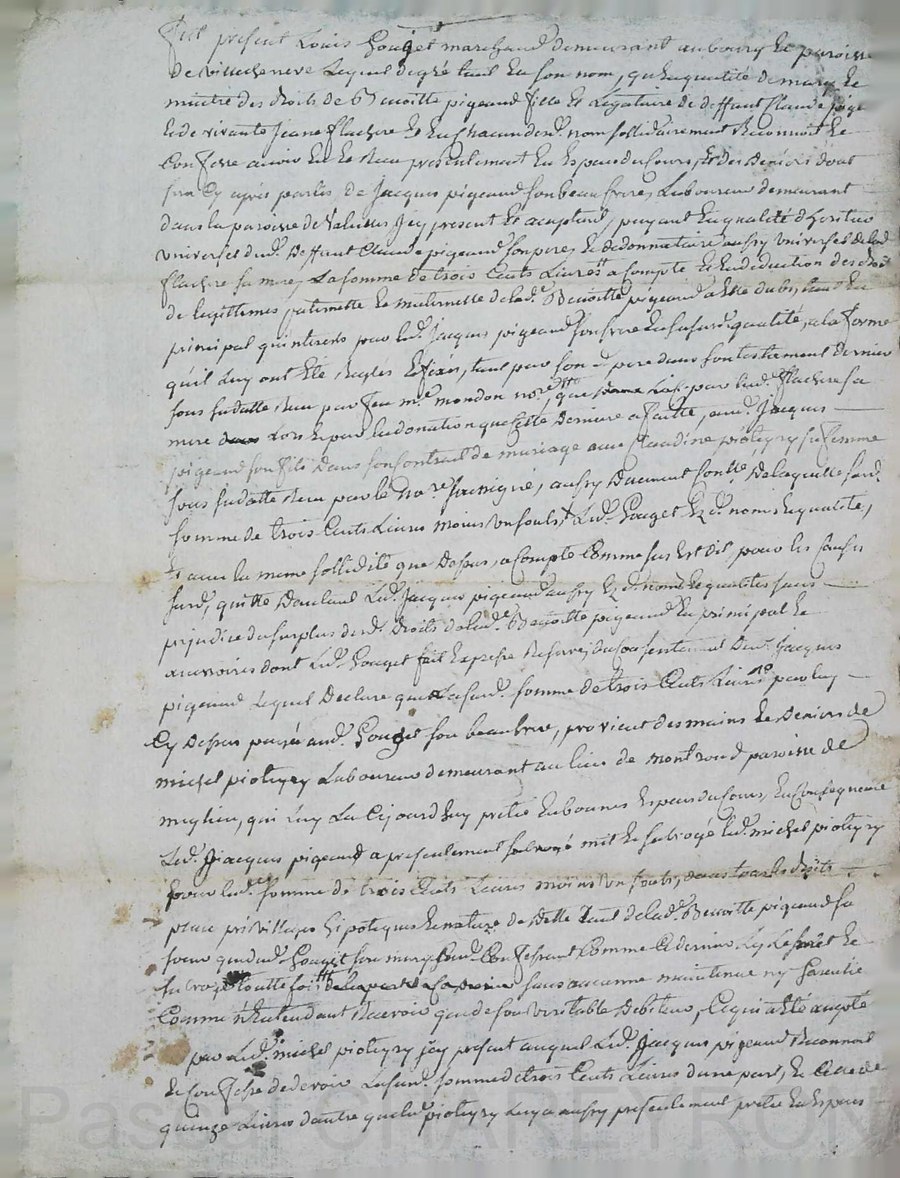 fut present Louis Gouget marchand demeurant au bourg et paroisse
de villecheneve Lequel de gré tant En son nom, qu'en qualité de mary Et
maitre des droits de Benoitte pigeaud fille et Légataire de deffunt Claude pige
Et de vivante Jeane flachere Et En chacun desd. nom sollidairement Reconnoit Et
Confesse avoir Eu Et Receu presentement En Espece du Cours, Et des Deniers dont
sera Cy après parlés de Jacques pigeaud son beau frere, Laboureur demeurant
dans la paroisse de Jcy present Et aceptant, payant En qualité d'heritier
universel dud. Deffunt Claude pigeaud son pere, Et de donnataire aussy universel de lad.
flachere sa mere, La somme de trois Cents Livres a compte Et En deduction des droits
de Legitimes paternelle Et maternelle de lad. Benoitte pigeaud a Elle dubs, tant En
principal qu'interets par led. Jacques pigeaud son frere En sa susd. qualité, a la forme
qu'il Luy ont Eté Reglés Et fixés, tant par sond. pere dans son testament dernier
sous sa datte Receu par feu me. mondon nore., que par lad. flachere sa
mere Lors Et par la donation que Cette Derniere a faitte, aud. Jacques
pigeaud son fils Dans son Contract de mariage avec Claudine pioteyry sa femme
sous sa datte Receu par le nore. aussy Dument Conlle. De laquelle susd.
somme de trois Cents Livres moins un souls, Led. Gouget Ezd. noms Et qualité,
Et avec la meme sollidité que Dessus, a Compte Comme sus Est dit pour les Causes
susd. quitte Dautant Led. Jacques pigeaud aussy Ezd. noms Et qualités sans
prejudice du surplus desd. droits de lad. Benoitte pigeaud En principal Et
accessoires dont Led. Gouget fait Expresse Reserve, du Consentement Dud. Jacques
pigeaud Lequel Declare que La susd. somme de trois Cents Livres par luy
Cy Dessus payée aud. Gouget son beau frere, provient des mains Et Deniers de
michel pioteyry Laboureur demeurant au lieu de montrond paroisse de
qui Luy La Cejourdhuy pretée En bonnes Especes du Cours, En Consequence
Led. Jacques pigeaud a presentement subrogé mit Et subroge Led. michel pioteyry
pour lad. somme de trois Cents Livres moins un souls, dans tous les droits
place privilleges hipoteques Et nature de dette tant de lad. Benoitte pigeaud sa
soeur que dud. Gouget son mary, Led. Confessant Comme Ce dernier Et
subroge touttefois sans aucune maintenue ny Garentie
Comme n'Entendant Recevoir que de son veritable Debiteur, Ce qui a Eté accepté
par Led. michel pioteyry Jcy present auquel Led. Jacques pigeaud Reconnoit
Et Confesse de devoir La susd. somme de trois Cents Livres dune part, Et Celle de
quinze Livres dautre que led. pioteyry Luy a aussy presentement pretée En Espece
Passat CHAREYRON